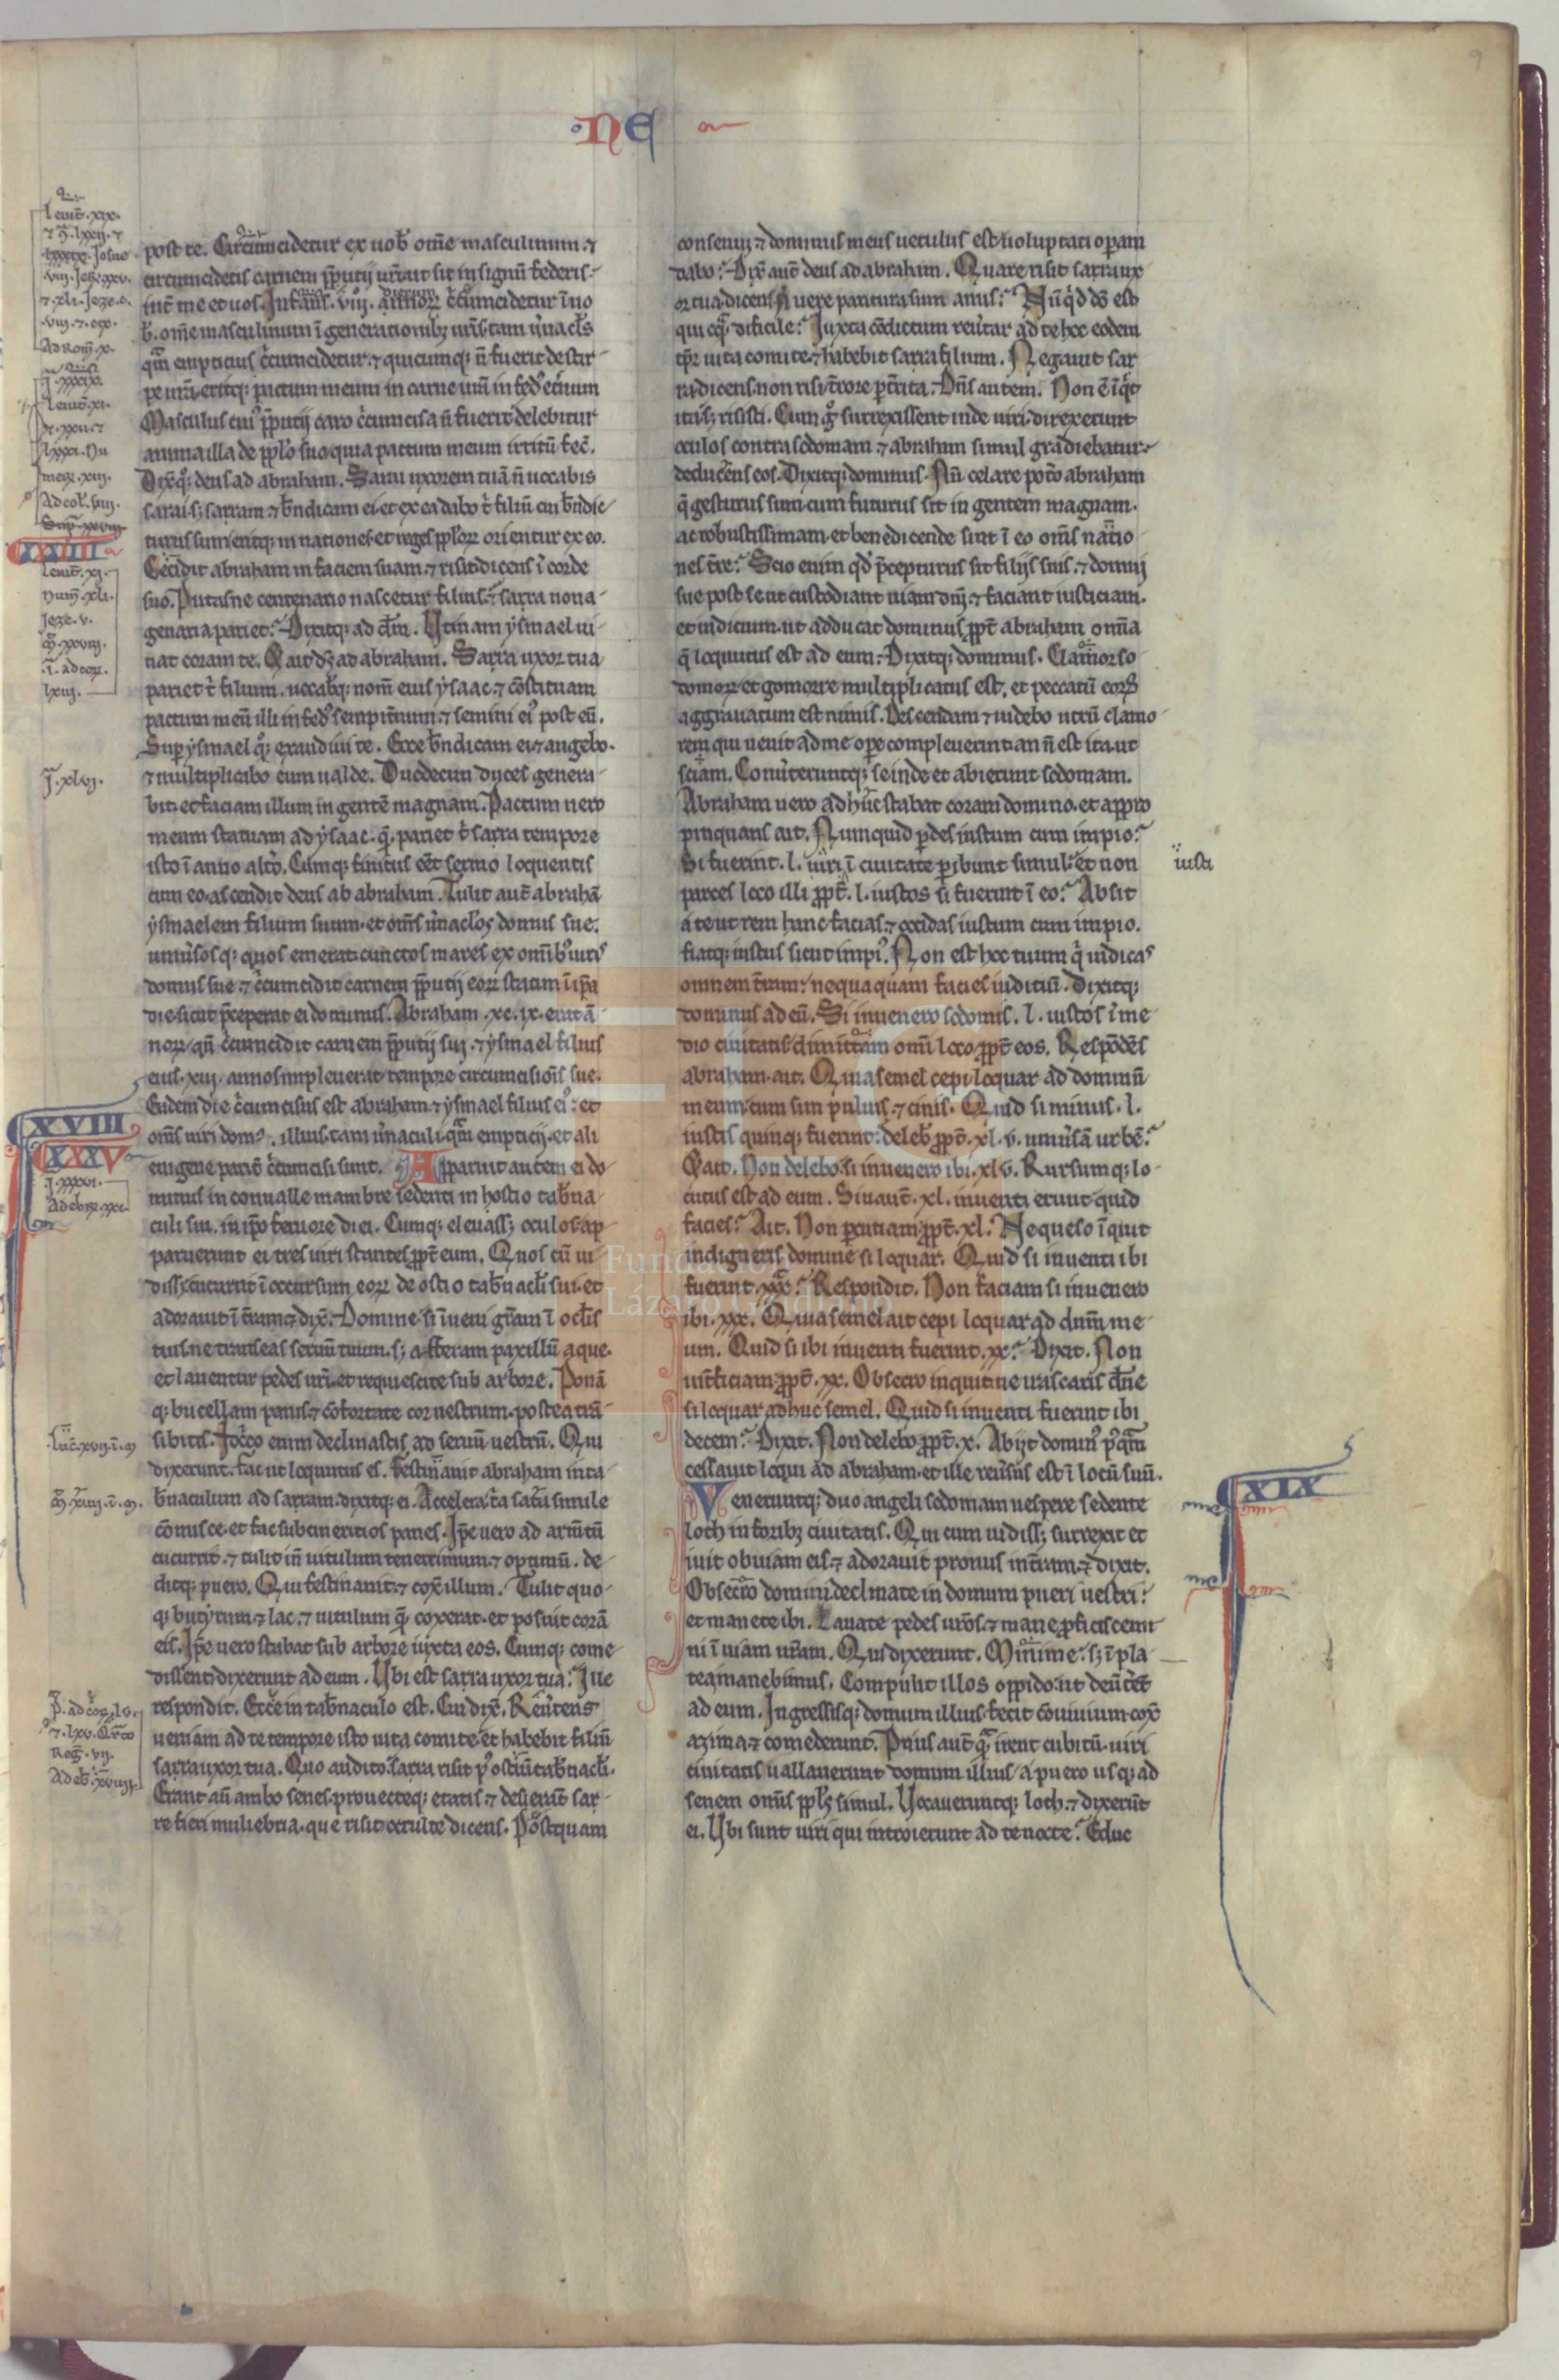 9
NE
post te. Circumcidetur ex uob̄ om̄e masculinum. ⁊
circumcidetis carnem p̄putij ur̄i ut sit in signū federis
int̄ me et uos. Infans .viij. dierum c̄cumcidetur ī uo
b̄. om̄e masculinum ī generationibꝫ ur̄is. tam u̓nacl̓s
qm̄ empticius c̄cumcidetur. ⁊ quicumqꝫ n̄ fuerit de stir
pe ur̄a. eritqꝫ pactum meum in carne ur̄a in fedꝰ et̓num
Masculus cuiꝰ p̄putij caro c̄cumcisa n̄ fuerit delebitur
anima illa de pp̄lo suo quia pactum meum irritū fec̄.
Dix̄qꝫ deus ad abraham. Sarai uxorem tuā n̄ uocabis
sarai sꝫ sarram. ⁊ b̄ndicam ei. et ex ea dabo t̄ filiū cui b̄ndic
turus sum eritqꝫ in nationes. et reges pp̄loꝝ orientur ex eo.
Cecidit abraham in faciem suam. ⁊ risit dicens ī corde
suo. Putasne centenario nascetur filius. ⁊ sarra nona
genaria pariet? Dixitqꝫ ad d̄m. Utinam ysmael ui
uat coram te. Et ait ds̄ ad abraham. Sarra uxor tua
pariet t̄ filium. uocab̄qꝫ nom̄ eius ysaac. ⁊ cōstituam
pactum meū illi in fedꝰ sempit̄num. ⁊ semini eiꝰ post eū.
Super ysmael qͦꝫ exaudiui te. Ecce b̄ndicam ei. ⁊ augebo.
⁊ multiplicabo eum ualde. Duodecim duces genera
bit. et faciam illum in gentē magnam. Pactum uero
meum statuam ad ysaac. q̄. pariet t̄ sarra tempore
isto ī anno alt̓o. Cumqꝫ finitus eēt sermo loquentis
cum eo. ascendit deus ab abraham. Tulit aut̄ abrahā
ysmaelem filium suum. et om̄s u̓naclōs domus sue.
uniu̓sosqꝫ quos emerat. cunctos mares ex omībꝰ uiris
domus sue. ⁊ c̄cumcidit carnem p̄putij eoꝝ statim ī ip̄a
die sicut p̄ceperat ei dominus. Abraham .xc.ix. erat ā
noꝝ qn̄ c̄cumcidit carnem p̄putij sui. ⁊ ysmael filius
eius .xiij. annos impleuerat tempore circumcisiōis sue.
Eadem die c̄cumcisus est abraham. ⁊ ysmael filius eiꝰ. et
om̄s uiri domꝰ. illius. tam u̓naculi qm̄ empticij. et ali
enigene parit̄ c̄cumcisi sunt. Apparuit autem ei do
minus in conualle mambre sedenti in hostio tab̄na
culi sui. in ip̄o feruore diei. Cumqꝫ eleuassꝫ oculos. ap
paruerunt ei tres uiri stantes ꝓpt̄ eum. Quos cū ui
dissꝫ. cucurrit ī occursum eoꝝ de ostio tab̄nacl̓i sui. et
adorauit ī t̄ram. ⁊ dix̄. Domine si īueni gr̄am ī ocl̓is
tuis. ne transeas seruū tuum. sꝫ afferam paxillū aque.
et lauentur pedes ur̄i. et requiescite sub arbore. Ponā
qꝫ bucellam panis. ⁊ cōfortate cor uestrum. postea trā
sibitis. Idcͦco enim declinastis ad seruū uestrū. Qui
dixerunt. fac ut loqutus es. Festinauit abraham in ta
b̄naculum ad sarram. dixitqꝫ ei. Accelera t̓a sata simile
cōmisce. et fac subcinericios panes. Ip̄e uero ad arm̄tū
cucurrit. ⁊ tulit īn̄ uitulum tenerrimum. ⁊ optimū. de
ditqꝫ puero. Qui festinauit. ⁊ cox̄ illum. Tulit quo
qꝫ butyrum. ⁊ lac. ⁊ uitulum q̄. coxerat. et posuit corā
eis. Ip̄e uero stabat sub arbore iuxta eos. Cumqꝫ come
dissent. dixerunt ad eum. Ubi est sarra uxor tua? Ille
respondit. Ecce in tab̄naculo est. Cui dix̄. Reu̓tens
ueniam ad te tempore isto uita comite. et habebit filiū
sarra uxor tua. Quo audito. sarra risit pꝰ ostiū tab̄nacl̓i.
Erant aū ambo senes. prouecteqꝫ etatis. ⁊ desierāt sar
re fieri muliebria. que risit occulte dicens. Postquam
consenui. ⁊ dominus meus uetulus est uoluptati operam
dabo? Dix̄ aut̄ deus ad abraham. Quare risit sarra ux
or tua dicens. N̄ uere paritura sum anus? Nūq̓d dō est
quicq̄. difficile? Iuxta cōdictum reu̓tar ad te hoc eodem
tp̄r uita comite. ⁊ habebit sarra filium. Negauit sar
ra dicens. non risi. t̓rore p̄t̓rita. Dn̄s autem. Non ē īq̓t
ita. sꝫ risisti. Cum gͦ surrexissent inde uiri. direxerunt
oculos contra sodomam. ⁊ abraham simul gradiebatur
deducens eos. Dixitqꝫ dominus. Nū celare potō abraham
q̄ gesturus sum. cum futurus sit in gentem magnam.
ac robustissimam. et benedicende sint ī eo om̄s natio
nes t̄re? Scio enim qd̄ p̄cepturus sit filijs suis. ⁊ domuj
sue post se ut custodiant uiam dn̄j. ⁊ faciant iusticiam.
et iudicium. ut adducat dominus ꝓpt̄ abraham omīa
q̄ loquutus est ad eum. Dixitqꝫ dominus. Clamor so
domoꝝ et gomorre multiplicatus est. et peccatū eoꝝ
aggrauatum est nimis. Descendam ⁊ uidebo utrū clamo
rem qui uenit ad me opere compleuerint. an n̄ est ita ut
sciam. Conu̓teruntqꝫ se inde et abierunt sodomam.
Abraham uero adhuc stabat coram domino. et appro
pinquans ait. Numquid perdes iustum cum impio?
Si fuerint .l. uiri ī ciuitate peribunt simul? et non
parces loco illi ꝓpt̄ .l. iustos si fuerint ī eo? Absit
a te ut rem hanc facias. ⁊ occidas iustum cum impio.
fiatqꝫ iustus sicut impiꝰ. Non est hoc tuum q̓ iudicas
omnem t̄ram. nequaquam facies iuditiū. Dixitqꝫ
dominus ad eū. Si inuenero sodomis .l. iustos ī me
dio ciuitatis. dimittam omī loco ꝓpt̄ eos. Respōdēs
abraham. ait. Quia semel cepi loquar ad dominū
meum. cum sim puluis. ⁊ cinis. Quid si minus .l.
iustis quinqꝫ fuerint. deleb̄ ꝓpt̄ .xl.v. uniu̓sā urbē?
Et ait. Non delebo. si inuenero ibi .xl.v. Rursumqꝫ lo
cutus est ad eum. Sin aut̄ .xl. inuenti erunt quid
facies? Ait. Non percutiam ꝓpt̄ .xl. Ne queso īquit
indigneris domine si loquar. Quid si inuenti ibi
fuerint .xxx.? Respondit. Non faciam si inuenero
ibi .xxx. Quia semel ait cepi loquar ad dnm̄ me
um. Quid si ibi inuenti fuerint .xx.? Dixit. Non
int̓ficiam ꝓpt̄ .xx. Obsecro inquit ne irascaris dn̄e
si loquar adhuc semel. Quid si inuenti fuerint ibi
decem? Dixit. Non delebo ꝓpt̄ .x. Abijt dominꝰ pꝰqm̄
cessauit loqui ad abraham. et ille reu̓sus est ī locū suū.
Veneruntqꝫ duo angeli sodomam uespere sedente
loth in foribꝫ ciuitatis. Qui cum uidissꝫ surrexit et
iuit obuiam eis. ⁊ adorauit pronus in t̄ram. ⁊ dixit.
Obsecro domini declinate in domum pueri uestri.
et manete ibi. Lauate pedes ur̄os. ⁊ mane proficiscemi
ni ī uiam ur̄am. Qui dixerunt. Minime. sꝫ ī pla
tea manebimus. Compulit illos oppido. ut deu̓t̓ēt
ad eum. Ingressisqꝫ domum illius. fecit cōuiuium. cox̄
azima. ⁊ comederunt. Prius aut̄ q̄ irent cubitū. uiri
ciuitatis uallauerunt domum illius a puero usqꝫ ad
senem omīs pp̄ls simul. Uocaueruntqꝫ loth. ⁊ dixerūt
ei. Ubi sunt uiri qui introierunt ad te nocte? Educ
leuit̄. xix.
lxxxix. Josue
viij. Jeze. xxv.
⁊. xli. Jeze. e.
Ad Rom̄. x.
j. xxxix.
leuit̄. xi.
⁊. xxv. ⁊
lxxxi. Nu
mere. xiij.
Ad col̄. viij.
XXXIIII
leuit̄. xi.
Num̄. xli.
Jeze. v.
.ī. ad coꝝ.
lxiij.
j. xlvj.
XVIII
XXXV
j. xxxvi.
Ad ebr̄. xxi.
Luc̄. xvij. ī. m
Reḡ. vij.
Ad eb̄. xviij.
iusti
XIX
Fundación
Lázaro Galdiano